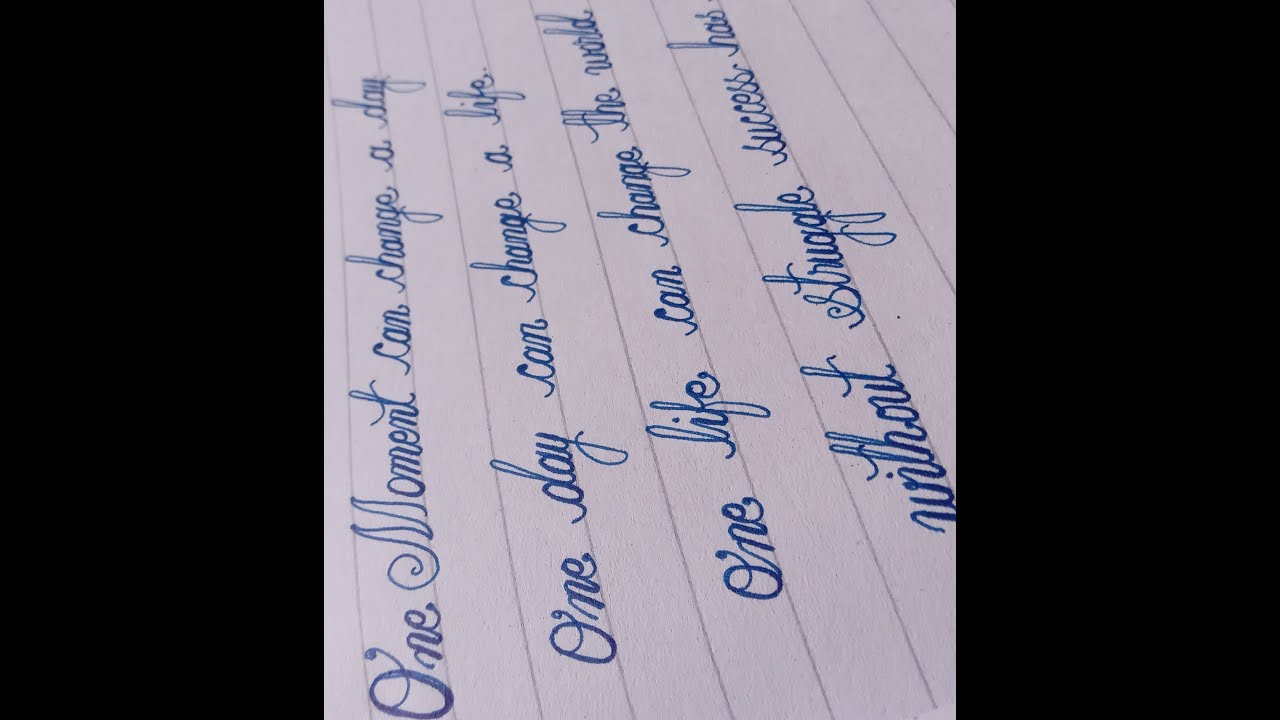 One Moment can change a day
One day can change a life.
One life can change the world
without struggle success has